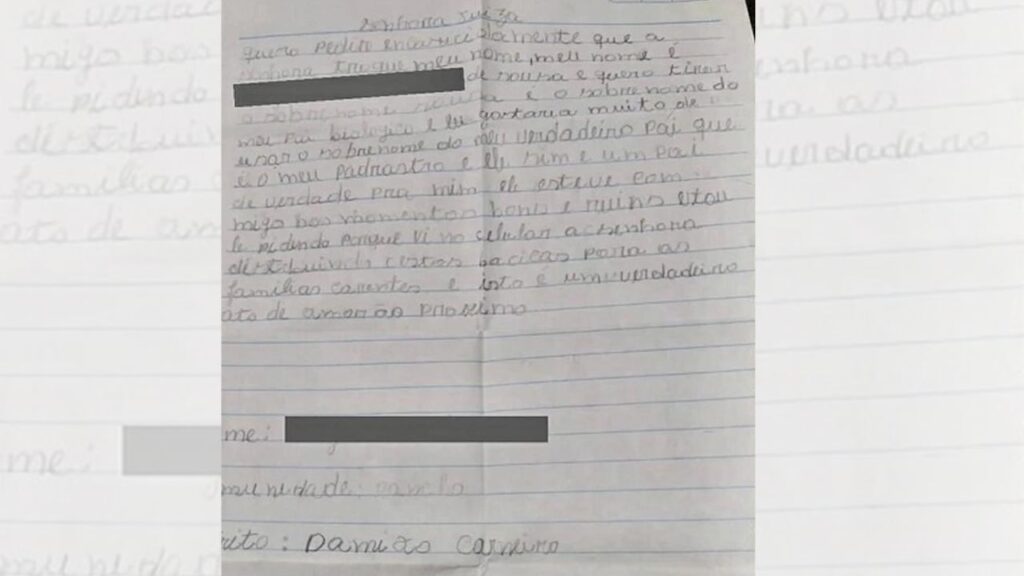 senhora juiza
quero pedir encarecidamente que a
senhora troque meu nome, meu nome é
de sousa e quero tirar
o sobrenome sousa é o sobrenome do
meu pai biologico e eu gostaria muito de
usar o sobrenome do meu verdadeiro pai que
é o meu padrastro e ele sim e um pai
de verdade pra mim ele esteve com
migo bos momentos bons e ruins estou
le pidindo porque vi no celular a senhora
distribuindo cestas bacicas para as
familias carentes e isto é um verdadeiro
ato de amor ão proximo
me:
munidade:
rito: Damião Carneiro